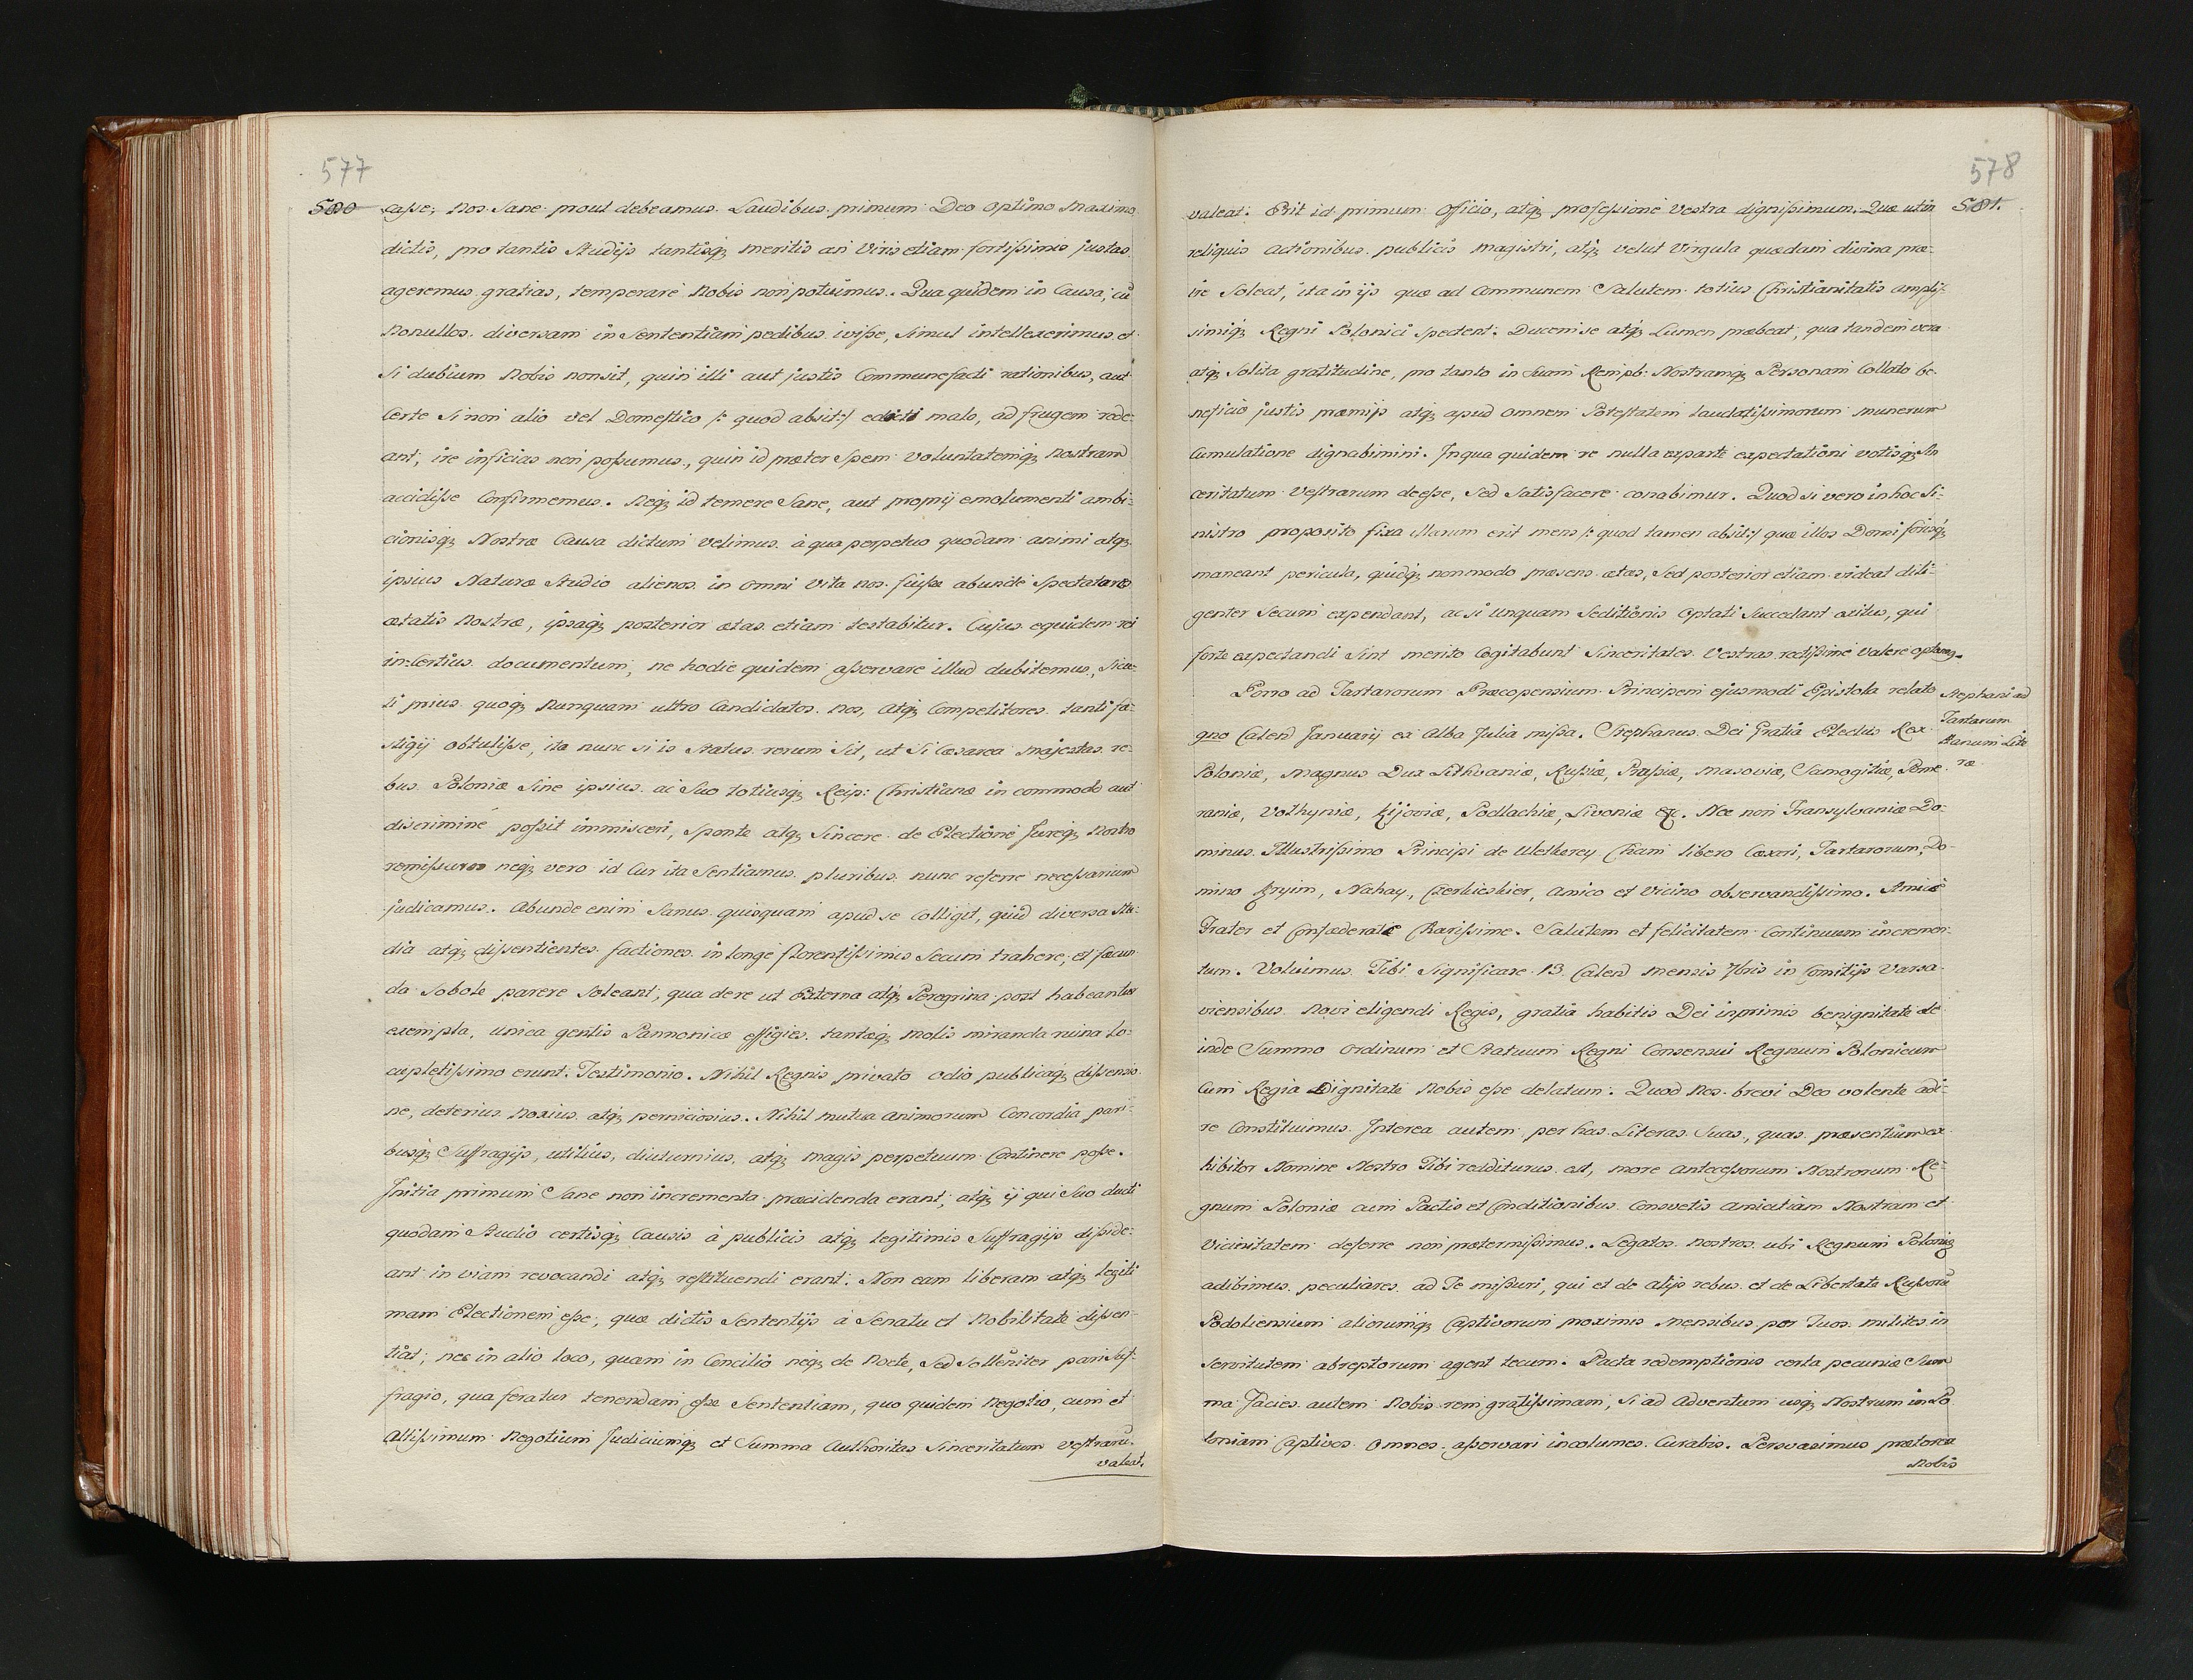 577
580
casse; Nos Sane prout debeamus Laudibus primum Deo Optimo Maximo
dictis, pro tantis Studijs tantisq; meritis an Viris etiam fortissimis justas
ageremus gratias, temperare Nobis non potuimus. Qua quidem in Causa, cū
Nonullos diversam in Sententiam pedibus ivisse, Simul intellexerimus et
Si dubium Nobis non sit, quin illi aut justis Communefacti rationibus, aut
Certe Si non alio vel Domestico /: quod absit :/ edicti malo, ad frugem rede-
ant, ire inficias non possumus, quin id præter Spem Voluntatemq; Nostram
accidisse Confirmemus. Neq; id temere Sane, aut proprij emolumenti ambi-
cionisq; Nostræ Causa dictum Velimus à qua perpetuo quodam animi atq;
ipsius Naturæ Studio alienos in omni Vita nos fuisse abunde Spectatores
ætatis Nostræ, ipsaq; posterior ætas etiam testabitur. Cujus equidem rei
in Certius documentum, ne hodie quidem asservare illud dubitemus, Sicu-
ti prius quoq; Nunquam ultro Candidatos nos, atq; Competitores tanti fa-
stigij obtulisse, ita nunc si is Status rerum Sit, ut Si Cæsarea Majestas re-
bus Poloniæ Sine ipsius ac Suo totiusq; Reip: Christianæ in commodo aut
discrimine possit immisceri, Sponte atq; Sincere de Electione Jureq; Nostro
remissuros neq; vero id Cur ita Sentiamus pluribus nunc referre necessarium
judicamus. Abunde enim Sanus quisquam apud se Colligit, quid diversa Stu-
dia atq; dissentientes factiones in longe florentissimis Secum trahere, et fœcun
da Sobole parere Soleant, qua de re ut Externa atq; Peregrina post habeantur
exempla, unica gentis Pannonicæ effigies tantæq; molis miranda ruina lo-
cupletissimo erunt Testimonio. Nihil Regnis privato odio publicaq; dissensio
ne, deterius noxius atq; perniciosius. Nihil mutua animorum Concordia pari-
busq; Suffragijs, utilius, diuturnius, atq; magis perpetuum Continere posse.
Initia primum Sane non incrementa præcidenda erant, atq; ij qui Suo ducti
quodam Studio certisq; Causis à publicis atq; legitimis Suffragijs disside-
ant in viam revocandi atq; restituendi erant. Non eam liberam atq; legiti
mam Electionem esse, quæ dictis Sententijs à Senatu et Nobilitate dissen-
tiat; nec in alio loco, quam in Concilio neq; de Nocte, Sed Solleniter pari Suf-
fragio, qua feratur tenendam esse Sententiam, quo quidem Negotio, cum et
Altissimum Negotium Judiciumq; et Summa Authoritas Sinceritatum vestrarū
valeat.
578
581.
valeat. Erit id primum Officio, atq; professione Vestra dignissimum. Quæ uti in
reliquis actionibus publicis magistri, atq; velut Virgula quædam divina præ-
ire Soleat, ita in ijs quæ ad Communem Salutem totius Christianitatis amplis-
simiq; Regni Polonici spectent. Ducem se atq; Lumen præbeat, qua tandem vera
atq; Solita gratitudine, pro tanto in Suam Rempb: Nostramq; Personam Collato be-
neficio justis præmijs atq; apud omnem Potestatem laudatissimorum munerum
Cumulatione dignabimini. In qua quidem re nulla ex parte expectationi votisq; Sin
ceritatum Vestrarum deesse, Sed Satisfacere conabimur. Quod si vero in hoc Si-
nistro proposito fixa illarum erit mens /: quod tamen absit :/ quæ illos Domi forisq;
maneant pericula, quidq; non modo præsens ætas, Sed posterior etiam videat dili-
genter Secum expendant, ac si unquam Seditionis Optati Succedant exitus, qui
forte expectandi Sint merito Cogitabunt Sinceritates Vestras rectissime Valere optamq.
Porro ad Tartarorum Præcopensium Principem ejusmodi Epistola relato
Stephani ad
Tartarum
Hanum Lite
ræ
gno Calend Januarij ex Alba Julia missa. Stephanus Dei Gratia Electus Rex
Poloniæ, Magnus Dux Lithvaniæ, Russiæ, Prussiæ, Masoviæ, Samogitiæ, Pome
raniæ, Volhyniæ, Kijoviæ, Podlachiæ, Livoniæ &c. Nec non Transylvaniæ Do-
minus Illustrissimo Principi de Chani libero Cæsari, Tartarorum, Do-
mino Krijim, Nahay, Czerkieskier, Amico et Vicino observandissimo. Amice
Frater et Confœderate Charissime. Salutem et felicitatem Continuum incremen-
tum. Voluimus Tibi Significare 13 Calend mensis 7bris in Comitijs Varsa-
viensibus novi eligendi Regis, gratia habitis Dei inprimis benignitate de-
inde Summo Ordinum et Statuum Regni Consensui Regnum Polonicum
Cum Regia Dignitate Nobis esse delatum. Quod Nos brevi Deo volente adi-
re Constituimus. Interea autem per has Literas Suas, quas præsentium ex
hibitor Nomine Nostro Tibi redditurus est, more antecessorum Nostrorum Re-
gnum Poloniæ cum Pactis et Conditionibus Consvetis amicitiam Nostram et
Vicinitatem deferre non prætermissimus. Legatos Nostros ubi Regnum Poloniæ
adibimus peculiares ad Te missuri, qui et de alijs rebus et de Libertate Russorū
Podoliensium aliorumq; Captivorum proximis Mensibus per Tuos milites in
Servitutem abreptorum agent tecum. Pacta redemptionis certa pecuniæ Sum
ma Facies autem Nobis rem gratissimam, Si ad Adventum usq; Nostrum in Po
loniam Captivos omnes asservari incolumes Curabis. Persvasimus præterea
Nobis